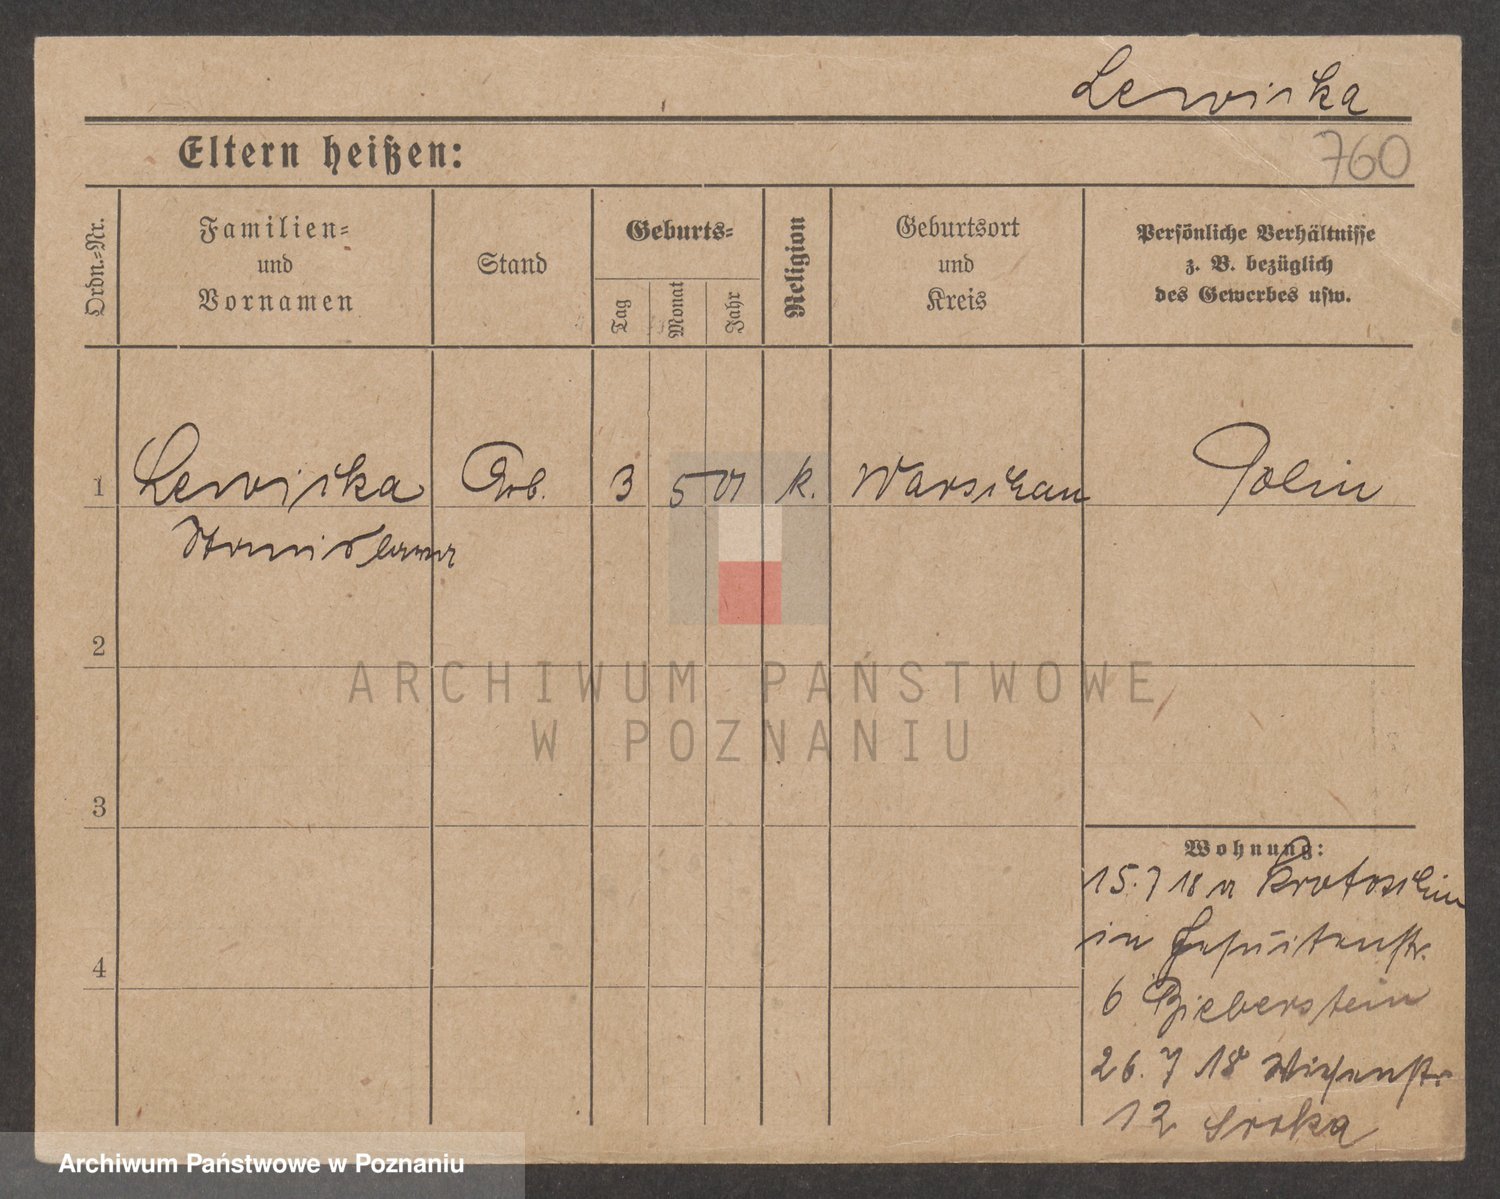 Lewicka
760
Eltern heißen:
Ordn.-Nr.
Familien-
und
Vornamen
Stand
Geburts-
Tag
Monat
Jahr
Religion
Geburtsort
und
Kreis
Persönliche Verhältnisse
z. B. bezüglich
des Gewerbes usw.
1 Lewicka Arb. 3 5 01 k. Warschau Polin
Stanislawa
2
3
4
Wohnung:
15. 7 18 v Krotoschin
in Jesuitenstr.
6 Bieberstein
26. 7 18 Wiesenstr
12 Sroka
ARCHIWUM PAŃSTWOWE
W POZNANIU
Archiwum Państwowe w Poznaniu